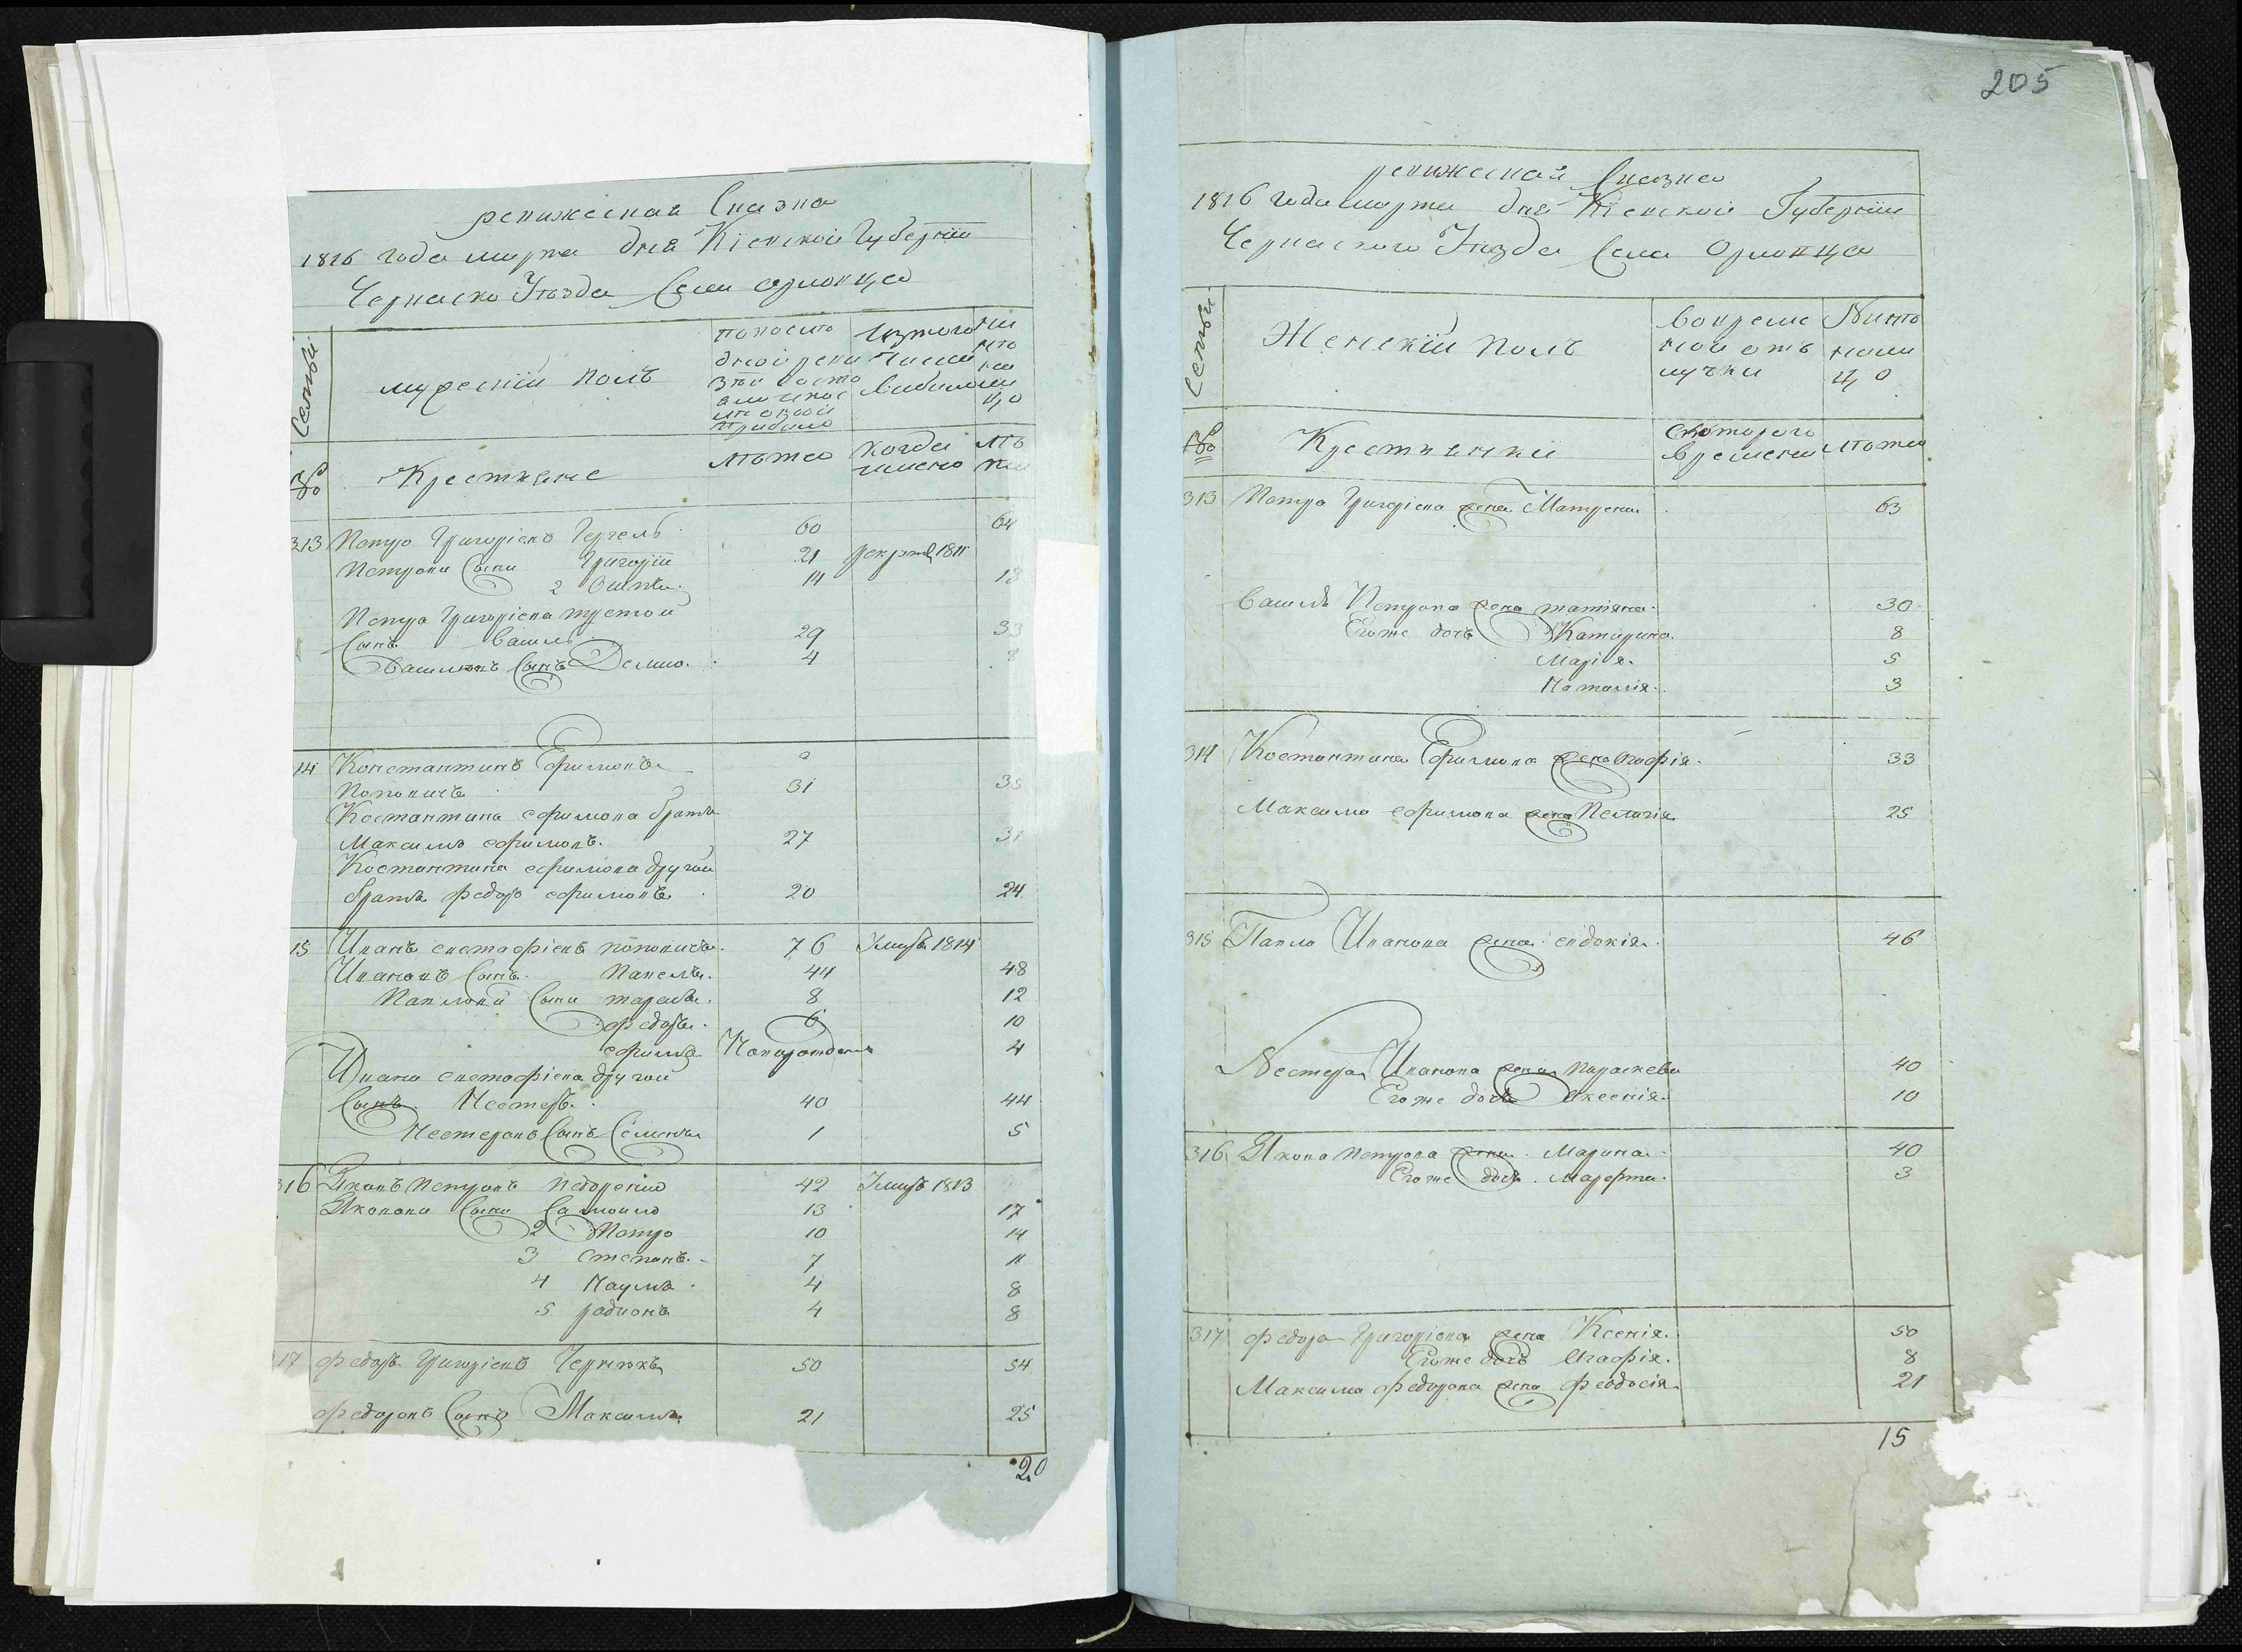 ревижеская Сказка
1816 года марта дня Кіевской Губерніи
Черкаско Уѣзда Села орловца
Семьи
мужескій полъ
по последней ревизіи состояло и после оной прибило
Изтого числа вибило
Ныне на лицо
№
Крестяне
лѣта
когда имено
лѣта
313 Петро Григоріевъ Гергель 60 64
Петрови Сыни Григорій 21 рекрутъ 1811
2 Осипъ 14 18
Петра Григоріева третой
Сынъ Василь 29 33
Василіевъ Сынъ Демко 4 8
14 Константинъ Ефимовъ
Поповичъ 31 35
Костантина ефимова братъ
Максимъ ефимовъ 27 31
Костантина ефимова другой
братъ федоръ ефимовъ 20 24
15 Иванъ евстафіевъ поповичъ 76 Умиръ 1814
Ивановъ Сынъ Павелъ 44 48
Павлови Сыни тарасъ 8 12
федоръ 6 10
ефимъ Новорожденъ 4
Ивана евстафіева другой
Сынъ Нестеръ 40 44
Нестеровъ Сынъ Семенъ 1 5
316 Яковъ Петровъ 42 Умиръ 1813
Яковови Сыни Самойло 13 17
2 Петро 10 14
3 степанъ 7 11
4 Наумъ 4 8
5 радионъ 4 8
17 федоръ Григоріевъ Чернюкъ 50 54
федоровъ Сынъ Максимъ 21 25
20
205
ревижеская Сказка
1816 года марта дня Кіевской Губерніи
Черкаского Уѣзда Села Орловца
Семьи
Женскій полъ
Во временой отлучки
Ныне на лицо
№
Крестянки
Скоторого времени
лѣта
313 Петра Григоріева жена Матрена 63
Василя Петрова жена татіяна 30
Егоже дочъ Катерина 8
Марія 5
Наталія 3
314 Костантина Ефимова жена 33
Максима ефимова жена Пелагія 25
315 Павла Иванова жена евдокія 46
Нестера Иванова жена параскева 40
Егоже дочъ аксенія 10
316 Якова Петрова жена Марина 40
Егоже дочъ Марфта 3
317 федора Григоріева жена Ксенія 50
Егоже дочъ Агафія 8
Максима федорова жена феодосія 21
15